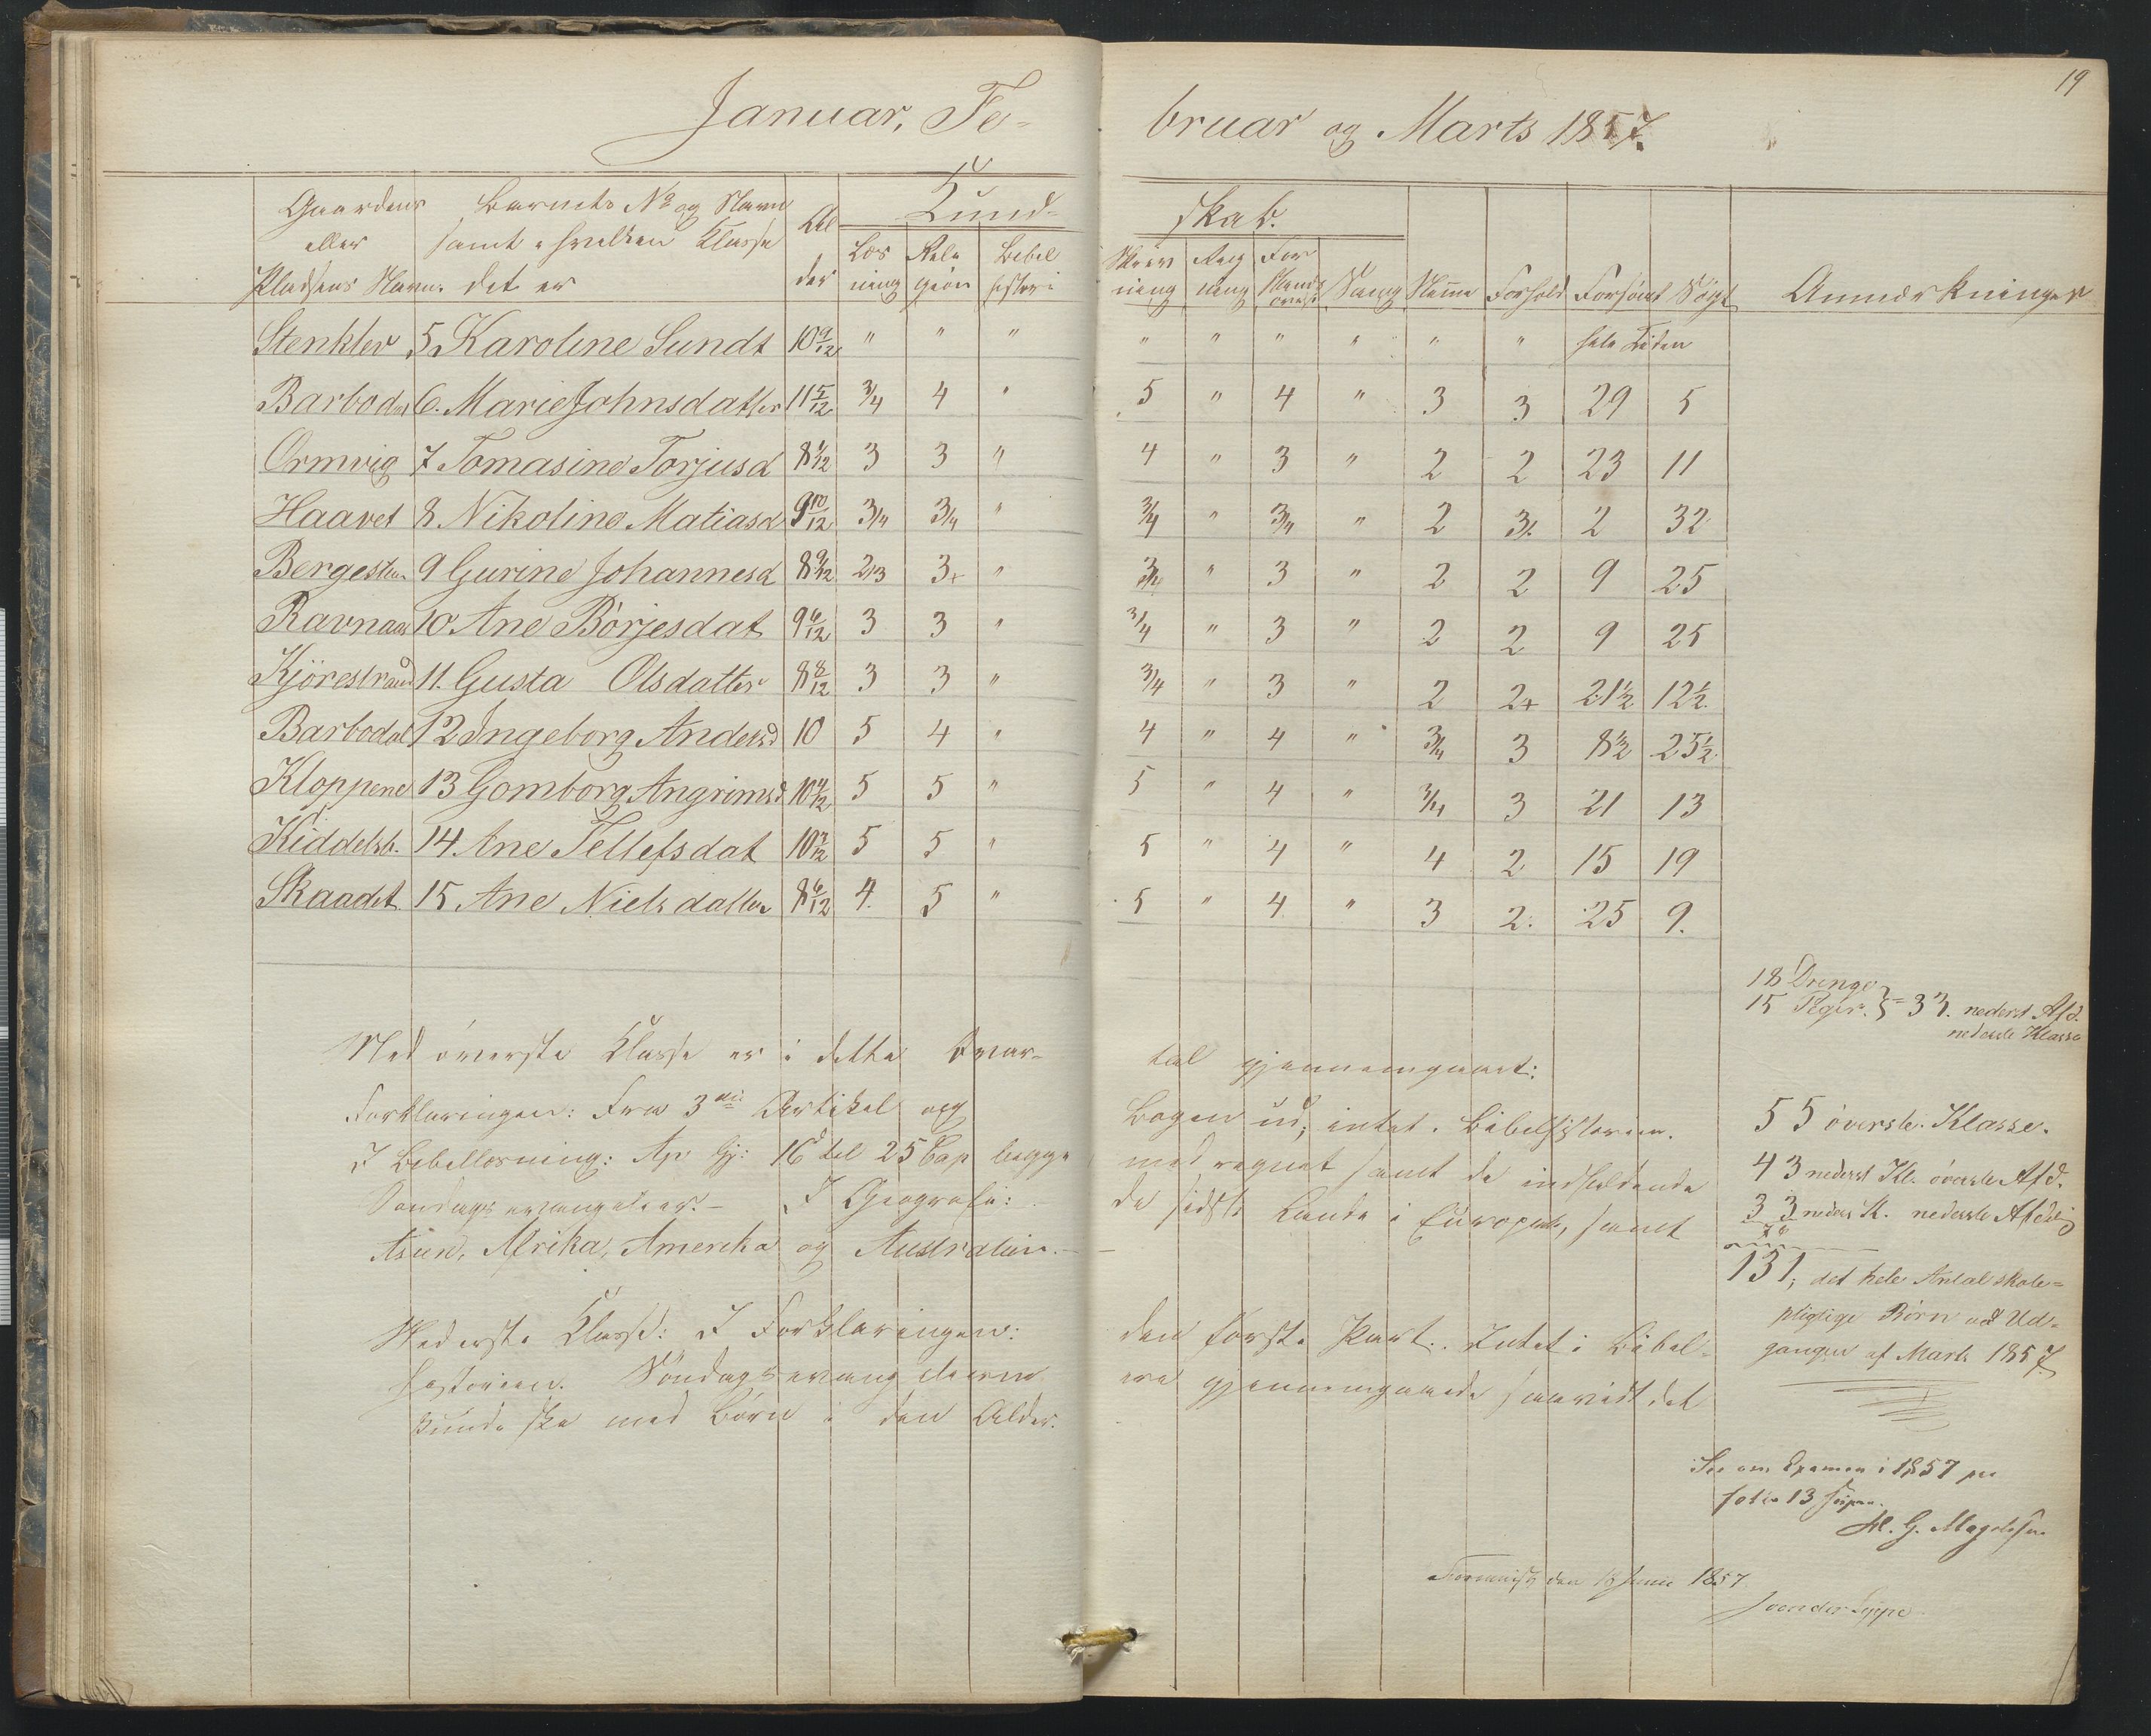 19
Januar, Fe- bruar og Marts 1857.
Gaardens eller Pladsens Navn. | Barnets No og Navn samt i hvilken Klasse det er | Al der | Kund- skab. | Forhold | Forsømt | Søgt | Anmærkninger
Læs ning | Reli gion | Bibel historie | Skriv ning | Reg ning | For stands øvels | Sang | Nemme
Stenklev | 5 Karoline Sundt | 10 9/12 | " | " | " | " | " | " | " | " | " | hele Tiden
Barbodal | 6. Marie Johnsdatter | 11 5/12 | 3/4 | 4 | " | 5 | " | 4 | " | 3 | 3 | 29 | 5
Ormvig | 7 Tomasine Torjusd | 8 1/12 | 3 | 3 | " | 4 | " | 3 | " | 2 | 2 | 23 | 11
Haavet | 8 Nikoline Matiasd | 9 10/12 | 3/4 | 3/4 | " | 3/4 | " | 3/4 | " | 2 | 3/. | 2 | 32
Bergesteen | 9 Gurine Johannesd | 8 9/12 | 2/3 | 3+ | " | 3/4 | " | 3 | " | 2 | 2 | 9 | 25
Ravnaas | 10 Ane Börjesdat | 9 6/12 | 3 | 3 | " | 3/4 | " | 3 | " | 2 | 2 | 9 | 25
Kjörestrand | 11. Gusta Olsdatter | 8 8/12 | 3 | 3 | " | 3/4 | " | 3 | " | 2 | 2+ | 21 1/2 | 12 1/2
Barbodal | 12 Ingeborg Andersd | 10 | 5 | 4 | " | 4 | " | 4 | " | 3/4 | 3 | 8 1/2 | 25 1/2
Kloppene | 13 Gomborg Angrimsd | 10 4/12 | 5 | 5 | " | 5 | " | 4 | " | 3/4 | 3 | 21 | 13
Kiddelsb. | 14 Ane Tellefsdat | 10 3/12 | 5 | 5 | " | 5 | " | 4 | " | 4 | 2 | 15 | 19
Skaadet | 15 Ane Nielsdatter | 8 6/12 | 4. | 5 | " | 5 | " | 4 | " | 3 | 2. | 25 | 9.
18 Drenge
15 Piger. } = 33. nederst Afd.
nederste Klasse
Med överste Klasse er i dette Qvar- tal gjennemgaaet:
Forklaringen: Fra 3die Artikel og Bogen ud; intet i Bibelhistorien.
I Bibellæsning: Ap Gj: 16d til 25 Cap begge medregnet samt de indfaldende
Söndagsevangelier. — I Geografi: de sidste Lande i Europa, samt
Asien, Afrika, Amerika og Australien. —
Nederste Klasse: I Forklaringen: den förste Part. Intet i Bibel-
historien. Söndagsevangelierne ere gjennemgaaede saavidt det
kunde ske med Börn i den Alder.
55 överste Klasse.
43 nederst Kl. överste Afd.
33 neders K. nederste Afdelig
131, det hele Antal skole-
pligtige Börn ved Ud-
gangen af Marts 1857
See om Examen i 1857 paa
folio 13
Fremvist den 18 Junii 1857